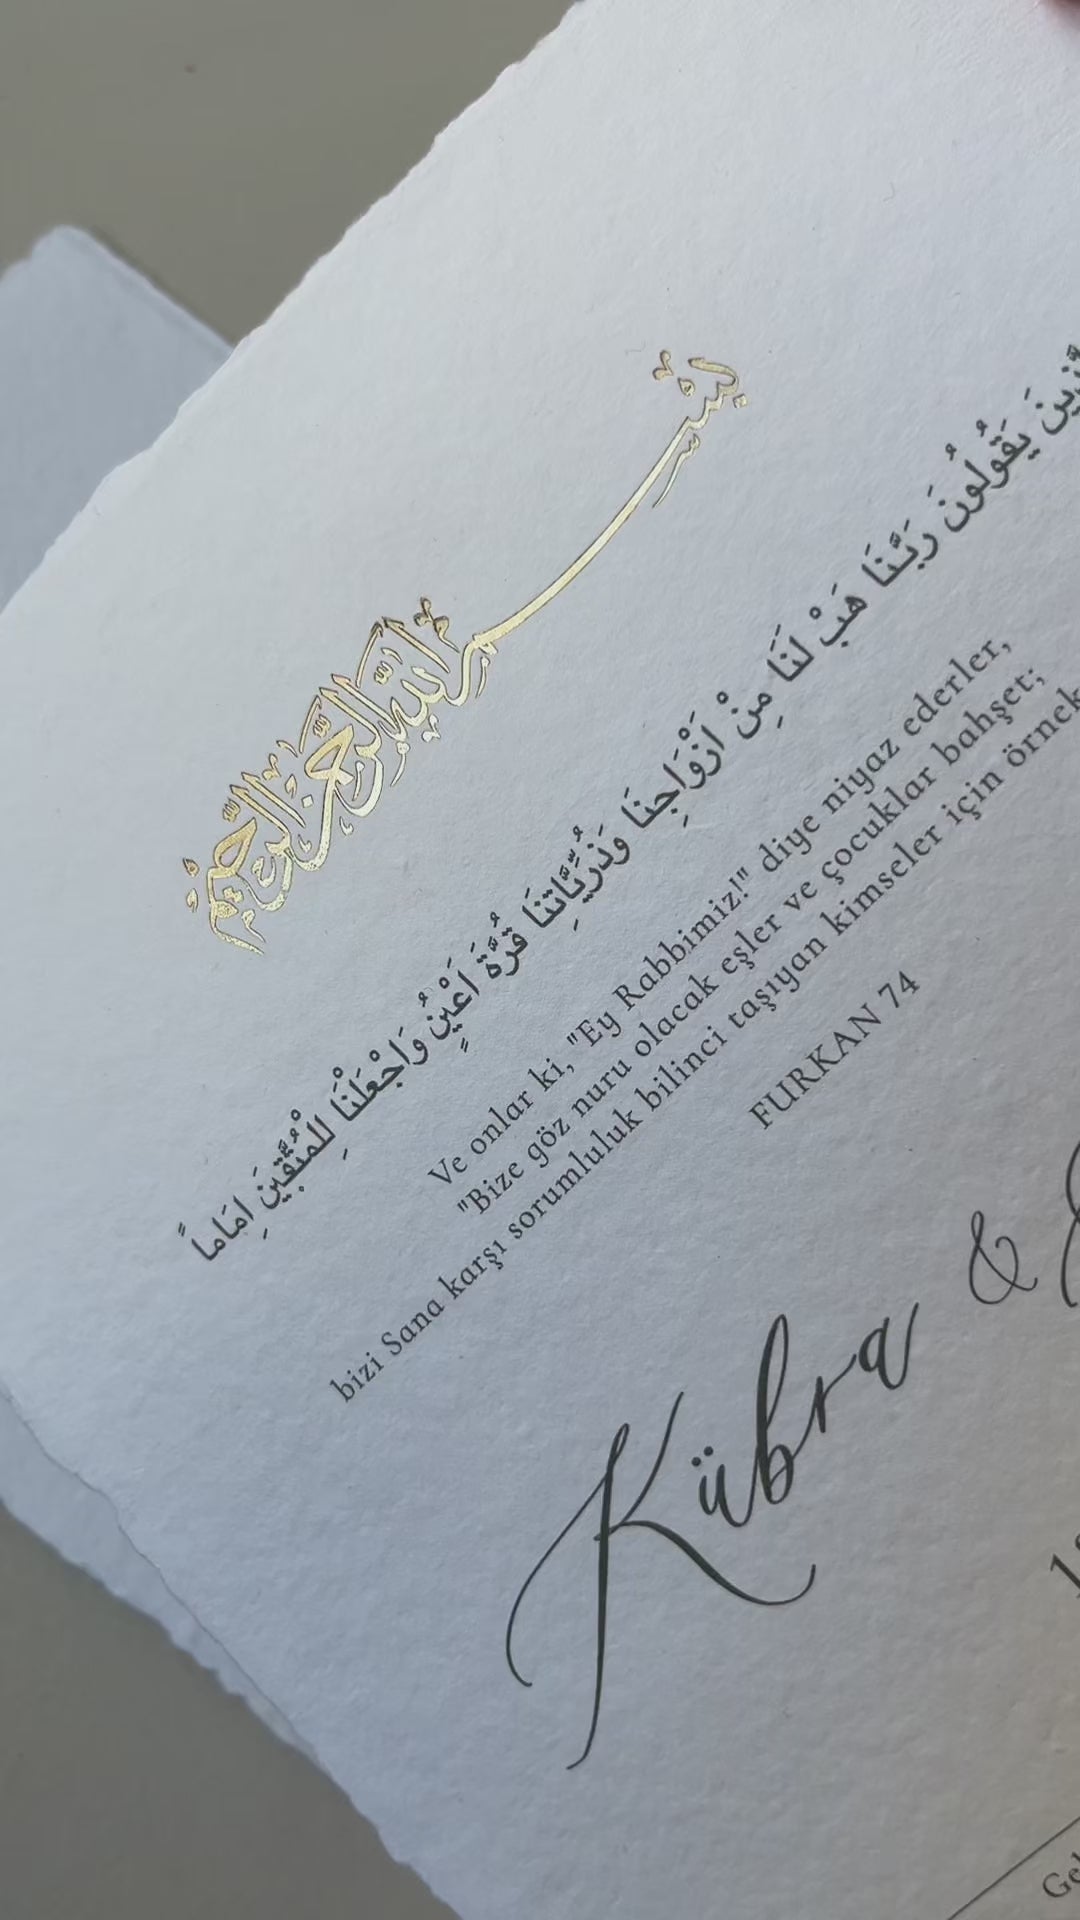 بِسْمِ اللَّهِ الرَّحْمَنِ الرَّحِيمِ
يَقُولُونَ رَبَّنَا هَبْ لَنَا مِنْ اَزْوَاجِنَا وَذُرِّيَّاتِنَا قُرَّةَ اَعْيُنٍ وَاجْعَلْنَا لِلْمُتَّقِينَ اِمَاماً
Ve onlar ki, "Ey Rabbimiz!" diye niyaz ederler,
"Bize göz nuru olacak eşler ve çocuklar bahşet;
bizi Sana karşı sorumluluk bilinci taşıyan kimseler için örnek
FURKAN 74
Kübra &